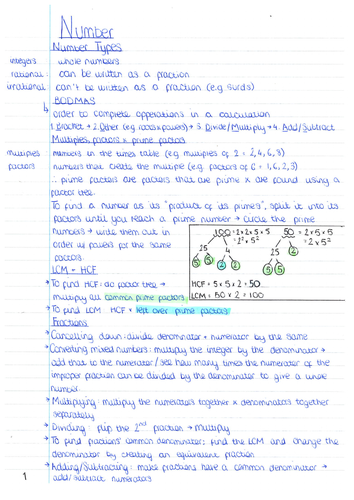 Number
Number Types
integers whole numbers
rational: can be written as a fraction
irrational can't be written as a fraction (e.g surds)
BODMAS
↳ order to complete opperations in a calculation
1. Bracket → 2. Other (e.g. roots x powers) → 3. Divide/Multiply → 4. Add/Subtract
Multiples, factors x prime factors
multiples numbers in the times table (e.g multiples of 2 = 2,4,6,8)
factors numbers that create the multiple (e.g. factors of 6 = 1,6,2,3)
∴ prime factors are factors that are prime x are found using a
factor tree.
To find a number as its "product of its primes", split it into its
factors until you reach a prime number → circle the prime
numbers → write them out in
order w powers for the same
factors
100 = 2x2x5x5
= 2² x 5²
25 4
5 5 2 2
50 = 2x5x5
= 2 x 5²
25 2
5 5
HCF = 5 x 5 x 2 = 50
LCM = 50 x 2 = 100
LCM + HCF
→ To find HCF: do factor tree →
multiply all common prime factors
→ To find LCM: HCF x left over prime factors
Fractions
→ Cancelling down: divide denominator + numerator by the same
→ Converting mixed numbers: multiply the integer by the denominator +
add that to the numerator / see how many times the numerator of the
improper fraction can be divided by the denominator to give a whole
number.
→ Multiplying: multiply the numerators together x denominators together
separately
→ Dividing: flip the 2nd fraction → multiply
→ To find fractions' common denominator: find the LCM and change the
denominator by creating an equivalent fraction
→ Adding/Subtracting: make fractions have a common denominator →
add/subtract numerators
1